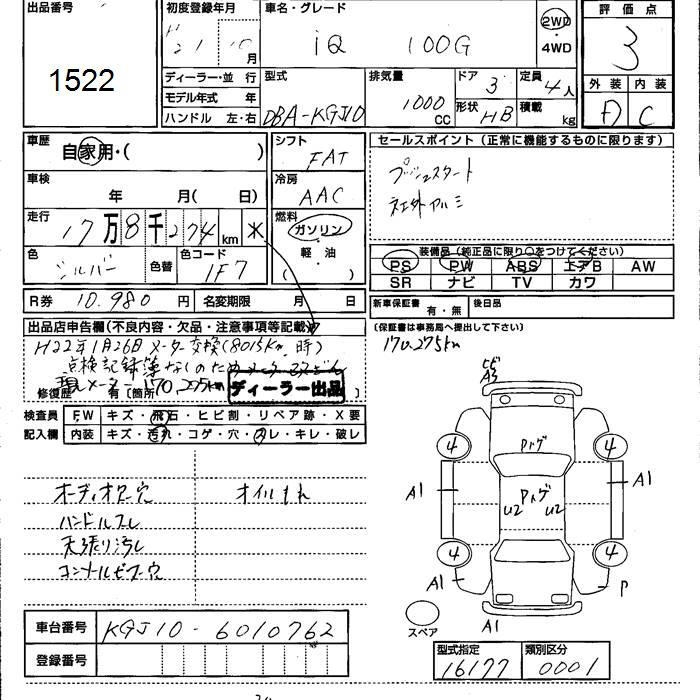 出品番号
1522
初度登録年月
21 10月
車名・グレード
iQ 100G
2WD
・4WD
評価点
3
ディーラー・並行
モデル年式 年
ハンドル 左・右
型式
DBA-KGJ10
排気量
1000
CC
ドア
3
形状 HB
定員
4人
積載
kg
外装 内装
A C
車歴
自家用・( )
シフト
FAT
セールスポイント(正常に機能するものに限ります)
プッシュスタート
社外アルミ
車検
年 月( 日)
冷房
AAC
走行
17万8千274km *
燃料
ガソリン
・
軽油
( )
色
シルバー
色替
色コード
1F7
装備品(純正品に限り○をつけてください)
PS PW ABS エアB AW
SR ナビ TV カワ
R券 10,980円 名変期限 月 日
新車保証書 有・無 後日品
(保証書は事務局へ提出して下さい)
170,275km
出品店申告欄(不良内容・欠品・注意事項等記載)
H22年1月26日メーター交換(8015km時)
点検記録簿なしのため
現メーター170,275km
ディーラー出品
修復歴 有〔箇所 〕
検査員
記入欄
F,W キズ・飛石・ヒビ割・リペア跡・X要
内装 キズ・汚れ・コゲ・穴・スレ・キレ・破レ
オーディオ穴 オイルもれ
ハンドルスレ
天張り汚レ
コンソールビス穴
A3
4 4
Pハゲ
A1 A1
Pハゲ
U2 U2
4 4
A1 P
スペア
A1
車台番号 KGJ10-6010762
登録番号
型式指定 類別区分
16177 0001